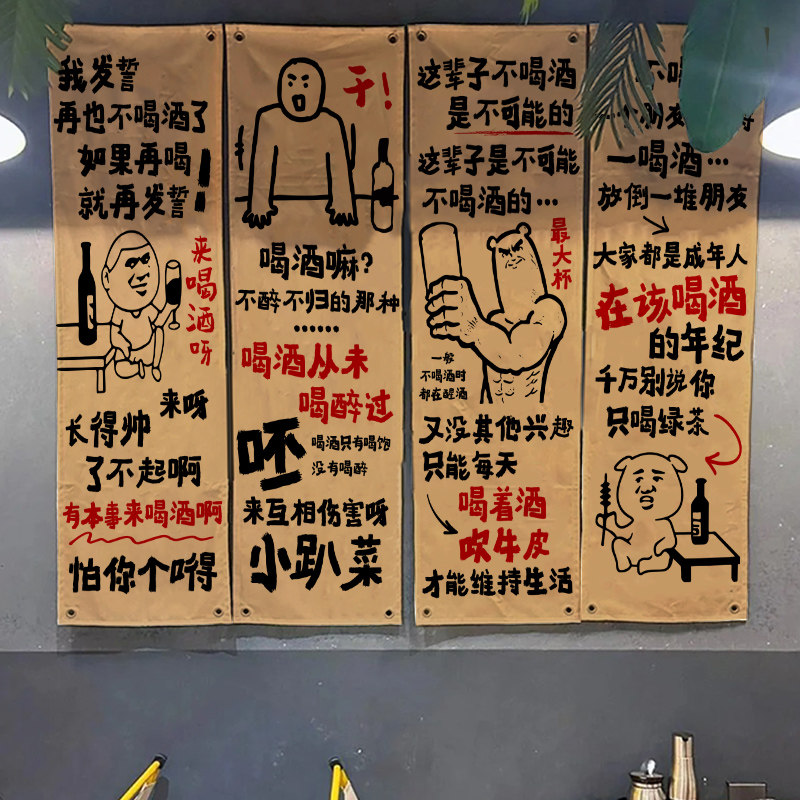 我发誓
再也不喝酒了
如果再喝
就再发誓!
来喝酒呀
来呀
长得帅
了不起啊
有本事来喝酒啊
怕你个嘚
干!
喝酒嘛?
不醉不归的那种
……
喝酒从未
喝醉过
呸
喝酒只有喝饱
没有喝醉
来互相伤害呀
小趴菜
这辈子不喝酒
是不可能的
这辈子是不可能
不喝酒的…
最大杯
一般
不喝酒时
都在醒酒
又没其他兴趣
只能每天
喝着酒
吹牛皮
才能维持生活
一喝酒…
放倒一堆朋友
大家都是成年人
在该喝酒
的年纪
千万别说你
只喝绿茶